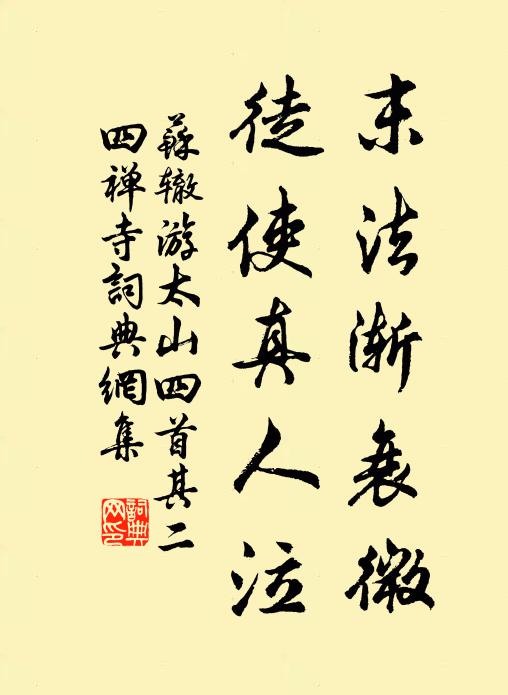 末法渐衰微
徒使真人泣
蘇辙游太山四首其二
四禅寺詞典網集
詞典
网印